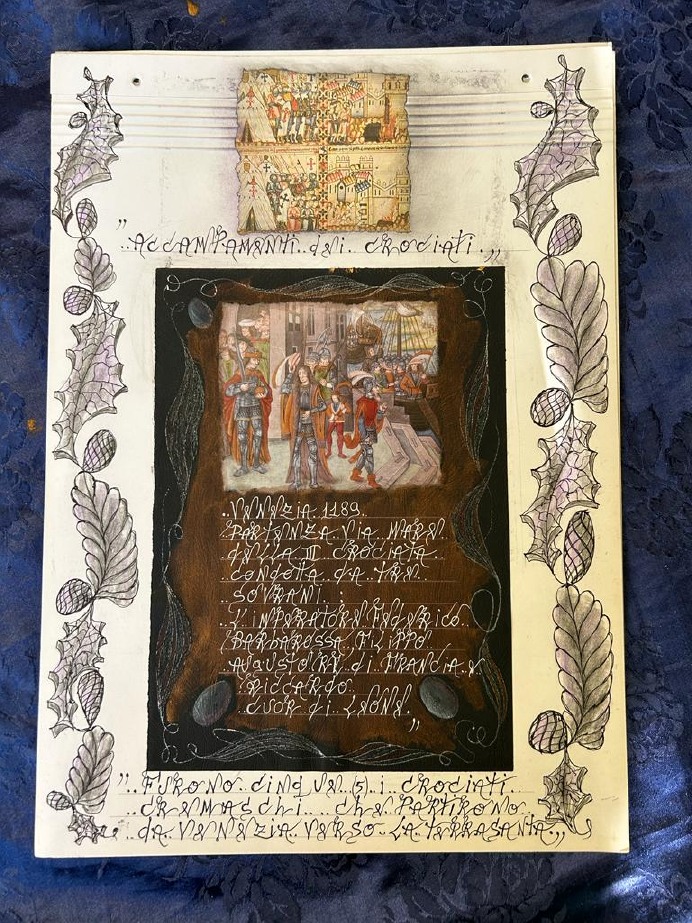 "..ACCAMPAMENTI..dei..crociati..„
..VENEZIA 1189.
PARTENZA VIA MARE
dELLA III CROCIATA
condotta da tre..
SOVRANI..:
L'IMPERATORE FEDERICO
BARBAROSSA, FILIPPO
AUGUSTO RE di FRANCIA e
RICCARDO
CUOR di LEONE.
"
"..FURONO cinque (5) i crociati
cremaschi...che PARTIRONO
da VENEZIA VERSO LA TERRASANTA..„